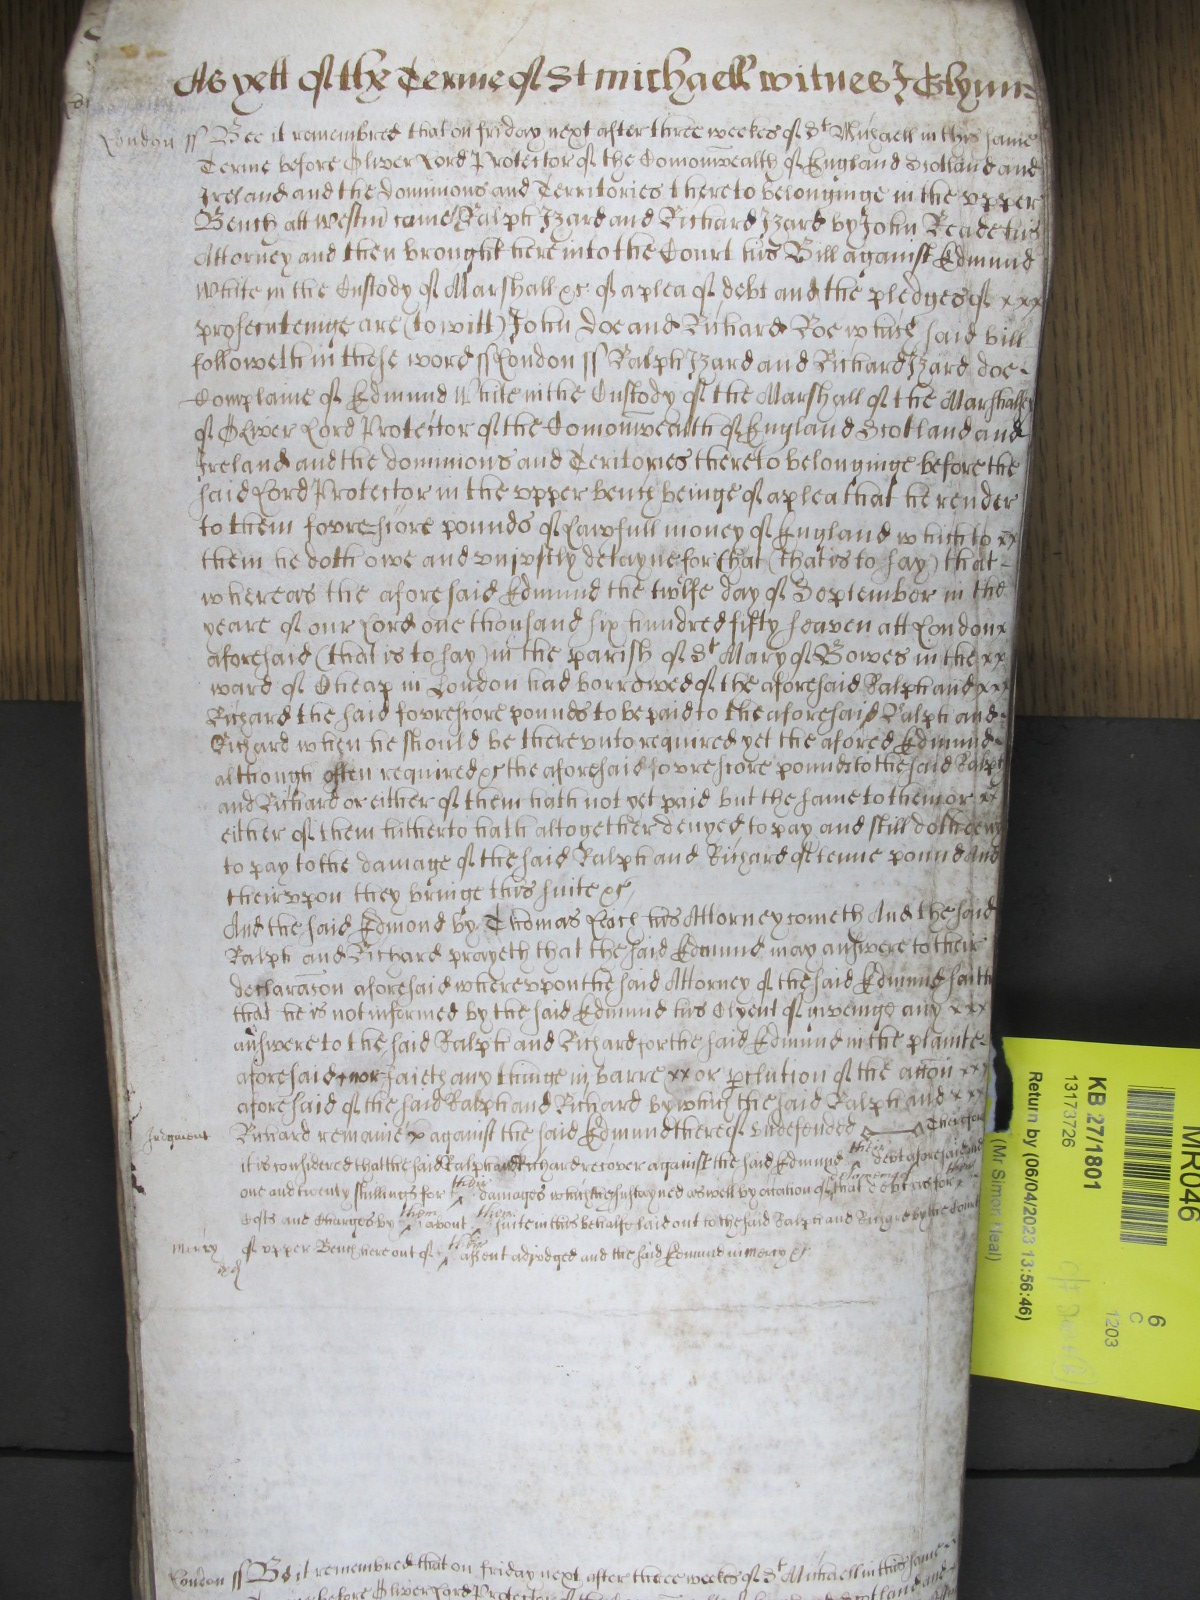 As yett of the Terme of St Michaell witnes J Glynne
London ss Bee it remembred that on friday next after three weekes of St Michaell in this same
Terme before Oliver Lord Protector of the Comonwealth of England Scotland and
Ireland and the dominions and Territories thereto belonginge in the vpper
Bench att Westm came Ralph Izzard and Richard Izzard by John Reade his
Attorney and then brought here into the Court his Bill against Edmund
White in the Custody of Marshall &c of a plea of debt and the pledges of xxx
prosecuteinge are (to witt) John Doe and Richard Roe which said bill
followeth in these word ss London ss Ralph Izzard and Richard Izzard doe
Complaine of Edmund White in the Custody of the Marshall of the Marshalsey
of Oliver Lord Protector of the Comonwealth of England Scotland and
Ireland and the dominions and Teritories thereto belonginge before the
said Lord Protector in the vpper bench beinge of a plea that he render
to them fovrescore pounds of Lawfull money of England which to xx
them he doth owe and vnjvstly detayne for that (that is to say) that
whereas the aforesaid Edmund the twelfe day of September in the
yeare of our Lord one thousand six hundred fifty seaven att London x
aforesaid (that is to say) in the parish of St Mary of Bowes in the xx
ward of Cheap in London had borrowed of the aforesaid Ralph and xxx
Richard the said fovrescore pounds to be paid to the aforesaid Ralph and
Richard when he should be therevnto required yet the afored Edmund
although often required &c the aforesaid fovrescore pounds to the said Ralph
and Richard or either of them hath not yet paid but the same to them or xx
either of them hitherto hath altogether denyed to pay and still doth deny
to pay to the damage of the said Ralph and Richard of tenne pound And
theirvpon they bringe this suite &c
And the said Edmond by Thomas Leich his Attorney cometh And the said
Ralph and Richard prayeth that the said Edmund may answere to their
declaracon aforesaid wherevpon the said Attorney of the said Edmund saith
that he is not informed by the said Edmund his Clyent of giveinge any xxx
answere to the said Ralph and Richard for the said Edmund in the plainte
aforesaid nor saieth any thinge in barre xx or pclution of the accon xx
aforesaid of the said Ralph and Richard by which the said Ralph and xxx
Judgment Richard remaine x against the said Edmund thereof vndefended Therefore
it is considered that the said Ralph and Richard recover against the said Edmund their debt aforesaid and
one and twenty shillings for their damages which they sustayned as well by occation of the detainement of that debt as for their
Costs and Charges by them about their suite in this behalfe laid out to the said Ralph and Richard by the Court
Mercy of vpper Bench here out of their assent adjudged and the said Edmund in mercy &c
London ss Be it remembred that on friday next after three weekes of St Michaell in this same
before Oliver Lord Protector of the Scotland and
MR046
KB 27/1801
13173726
Return by (06/04/2023 13:56:46)
(Mr Simon Neal)
6
C
1203